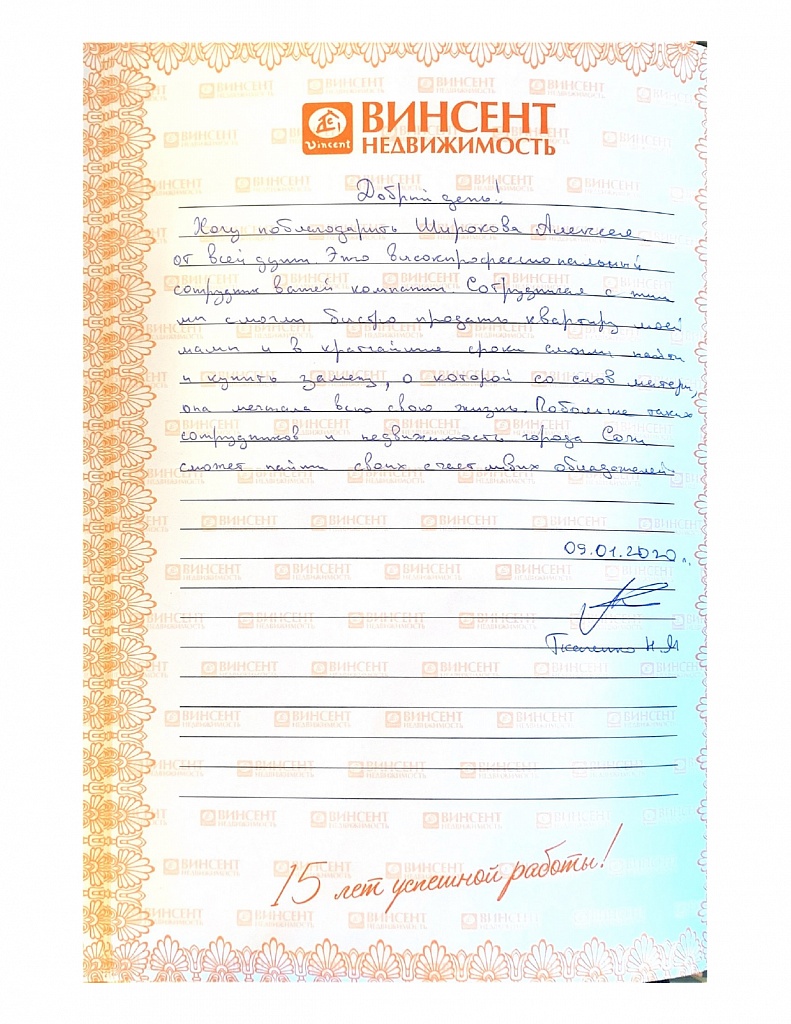 Vincent
ВИНСЕНТ
НЕДВИЖИМОСТЬ
Добрый день!
Хочу поблагодарить Широкова Алексея
от всей души. Это высокопрофессиональный
сотрудник вашей компании. Сотрудничая с ним
мы смогли быстро продать квартиру моей
мамы и в кратчайшие сроки смогли найти
и купить замену, о которой со слов матери,
она мечтала всю свою жизнь. Побольше таких
сотрудников и недвижимость города Сочи
сможет найти своих счастливых обладателей.
09.01.2020 г.
Ткаченко Н.М
15 лет успешной работы!